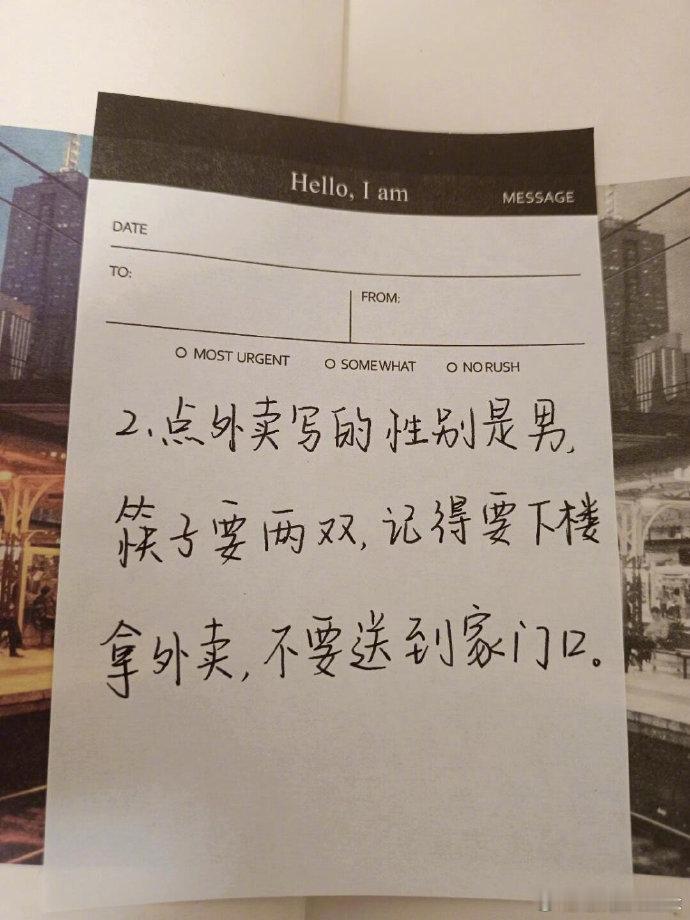 Hello, I am
MESSAGE
DATE
TO:
FROM:
MOST URGENT
SOMEWHAT
NO RUSH
2、点外卖写的性别是男,
筷子要两双,记得要下楼
拿外卖,不要送到家门口。